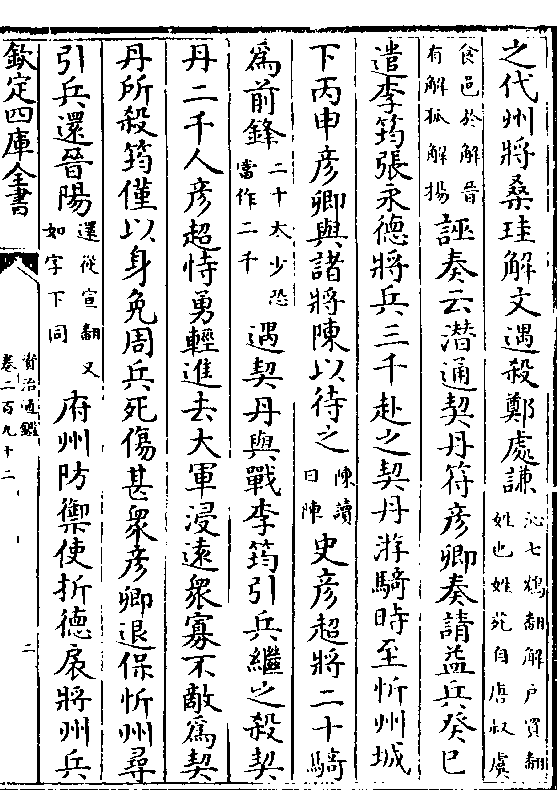 之代州將桑珪解文遇殺鄭處謙沁七鴆翻解户買翻姓也姓苑自唐叔虞
食邑於解晉有解狐解揚誣奏云潜通契丹符彦卿奏請益兵癸巳
遣李筠張永德將兵三千赴之契丹游騎時至忻州城
下丙申彦卿與諸將陳以待之陳讀曰陣史彦超將二十騎
為前鋒二十太少恐當作二千遇契丹與戰李筠引兵繼之殺契
丹二千人彦超恃勇輕進去大軍浸遠衆寡不敵為契
丹所殺筠僅以身免周兵死傷甚衆彦卿退保忻州尋
引兵還晉陽還從宣翻又如字下同府州防禦使折德扆將州兵
欽定四庫全書
資治通鑑
卷二百九十二
二